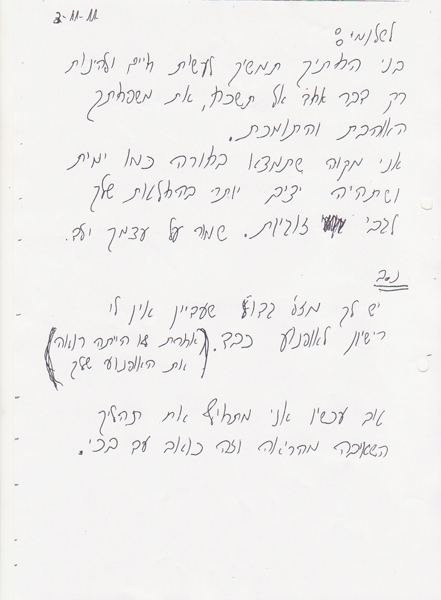 3-11-11
לשלומי:
בני הותיק תמשיך לעשות חיים ולהינות
רק דבר אחד אל תשכח, את משפחתך
האוהבת והתומכת.
אני מקווה שתמצא בחורה כמו ימית
ושתהיה יציב יותר בהחלטות שלך
לגבי זוגיות. שמור על עצמך
נ.ב
יש לך מזל גדול שעדיין אין לי
רישיון לאופנוע כבד. (אחרת לא היית רואה
את האופנוע שלך)
טוב עכשיו אני מתחיל את תהליך
השאיבה מהריאה וזה כואב עד בכי.